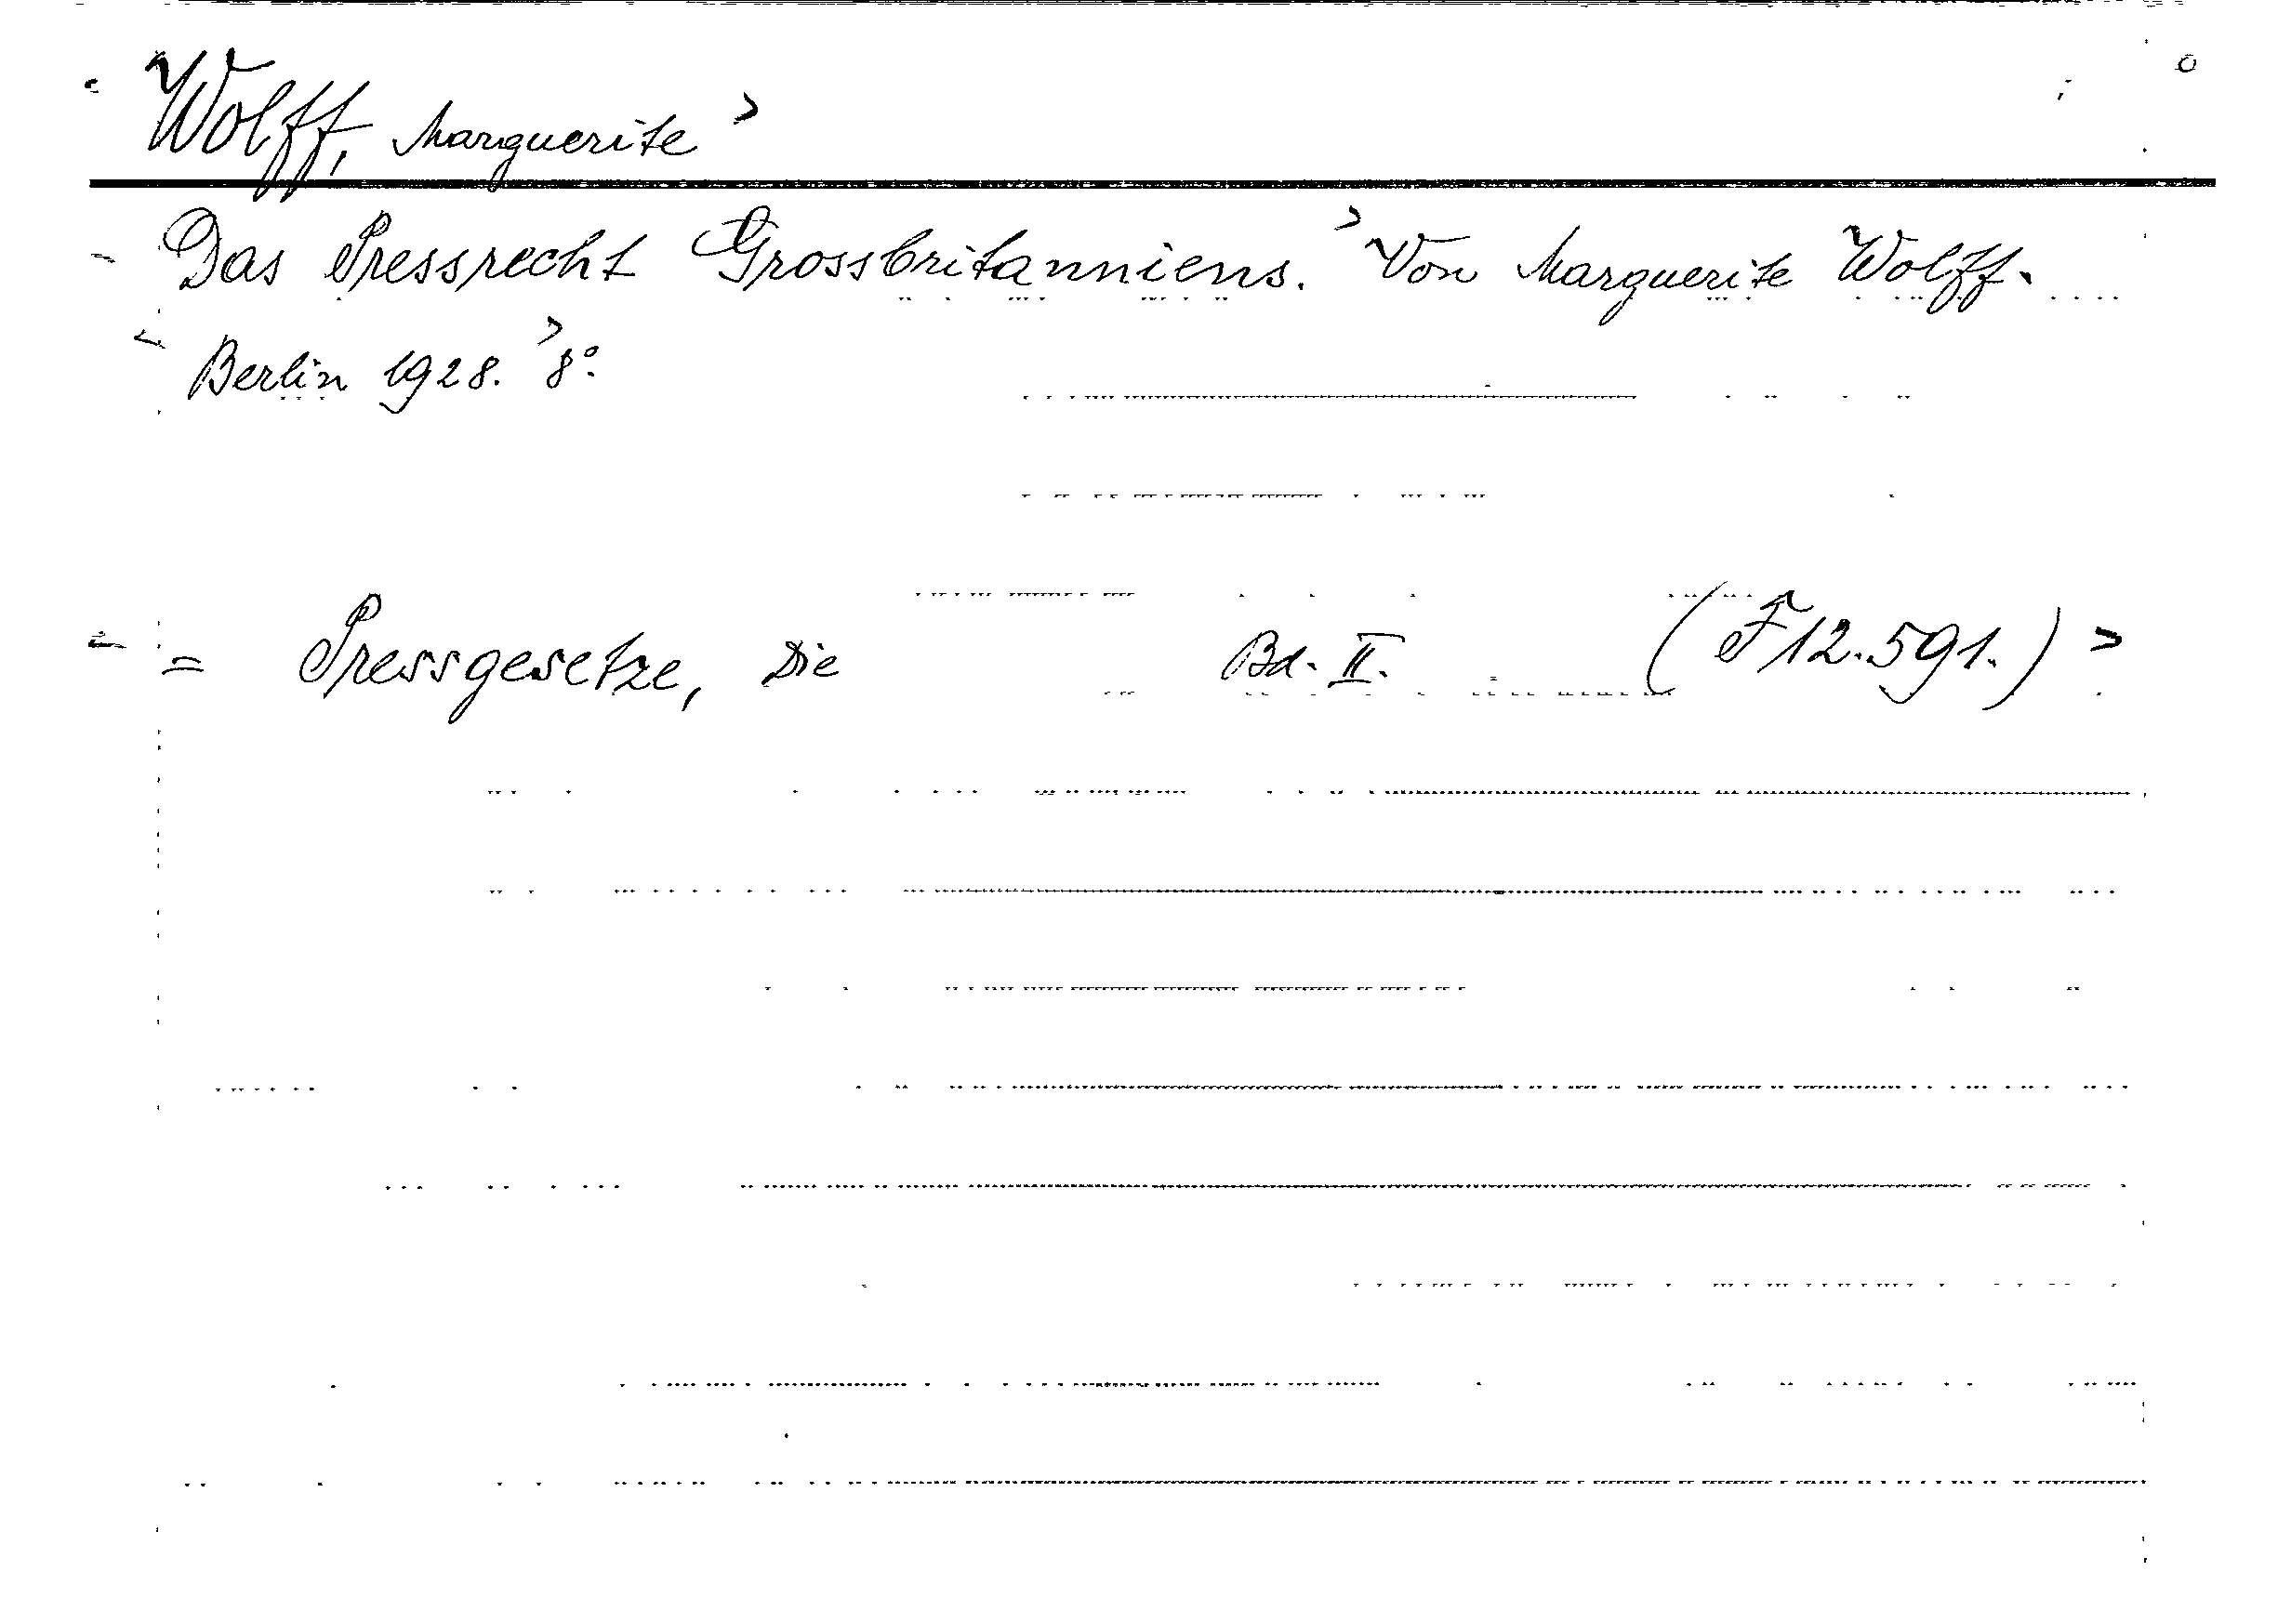 Wolff, Marguerite >
Das Pressrecht Grossbritanniens. > Von Marguerite Wolff.
< Berlin 1928. > 8°.
= Pressgesetze, Die Bd. II. (F 12.591.) >